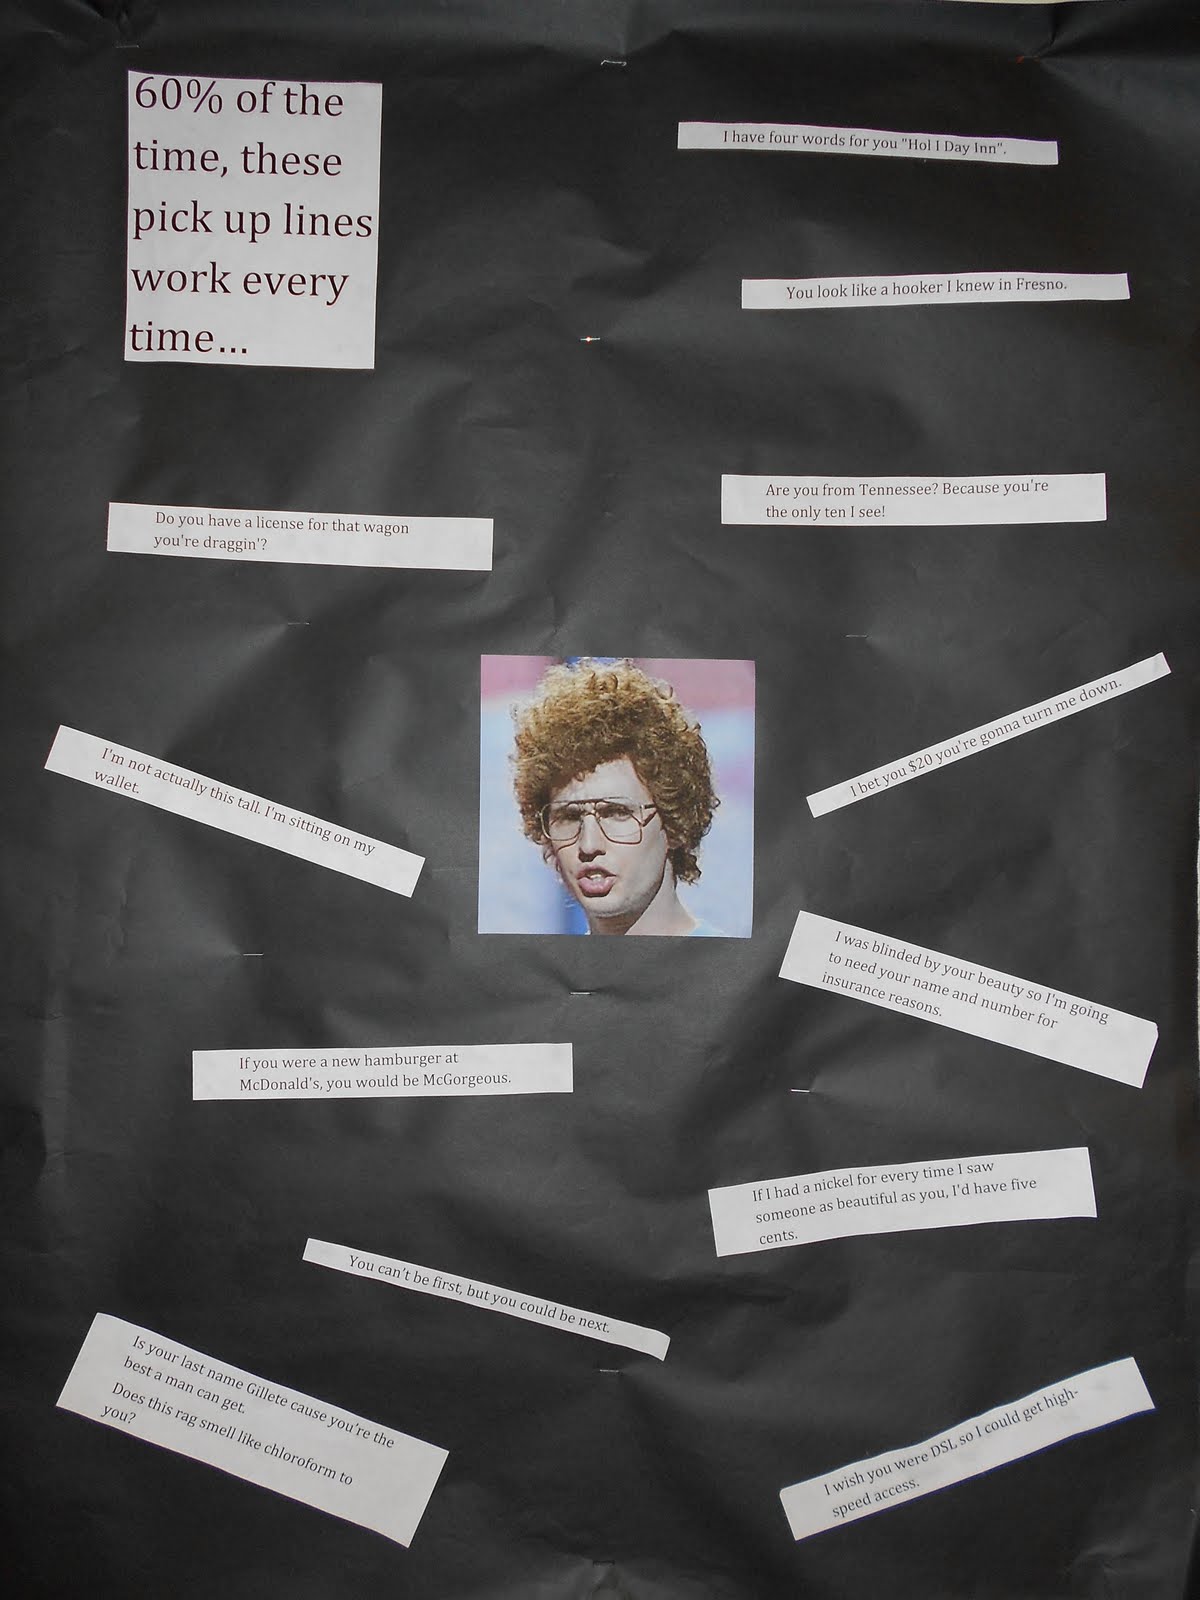 60% of the
time, these
pick up lines
work every
time...
I have four words for you "Hol I Day Inn".
You look like a hooker I knew in Fresno.
Are you from Tennessee? Because you're
the only ten I see!
Do you have a license for that wagon
you're draggin'?
I bet you $20 you're gonna turn me down.
I'm not actually this tall. I'm sitting on my
wallet.
I was blinded by your beauty so I'm going
to need your name and number for
insurance reasons.
If you were a new hamburger at
McDonald's, you would be McGorgeous.
If I had a nickel for every time I saw
someone as beautiful as you, I'd have five
cents.
You can't be first, but you could be next.
Is your last name Gillete cause you're the
best a man can get.
Does this rag smell like chloroform to
you?
I wish you were DSL so I could get high-
speed access.